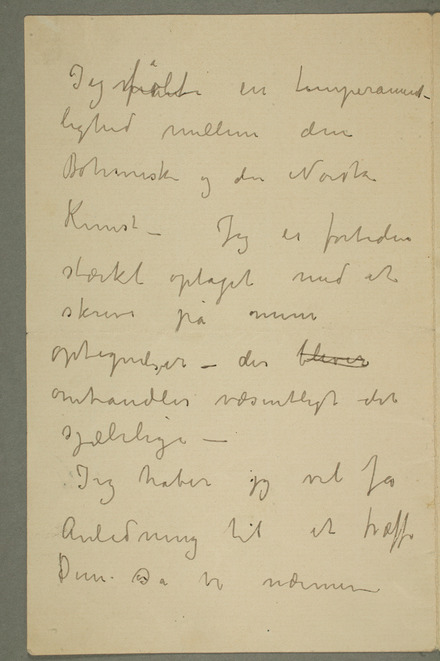 Jeg følte en temperament-
lighed mellem den
Bøhmiske og den Norske
Kunst –  Jeg er fortiden
stærkt optaget med at
skrive på mine
optegnelser – der bliver
omhandler væsentligt det
sjælelige –
Jeg håber jeg vil få
Anledning til at træffe
Dem. Så vi nærmere